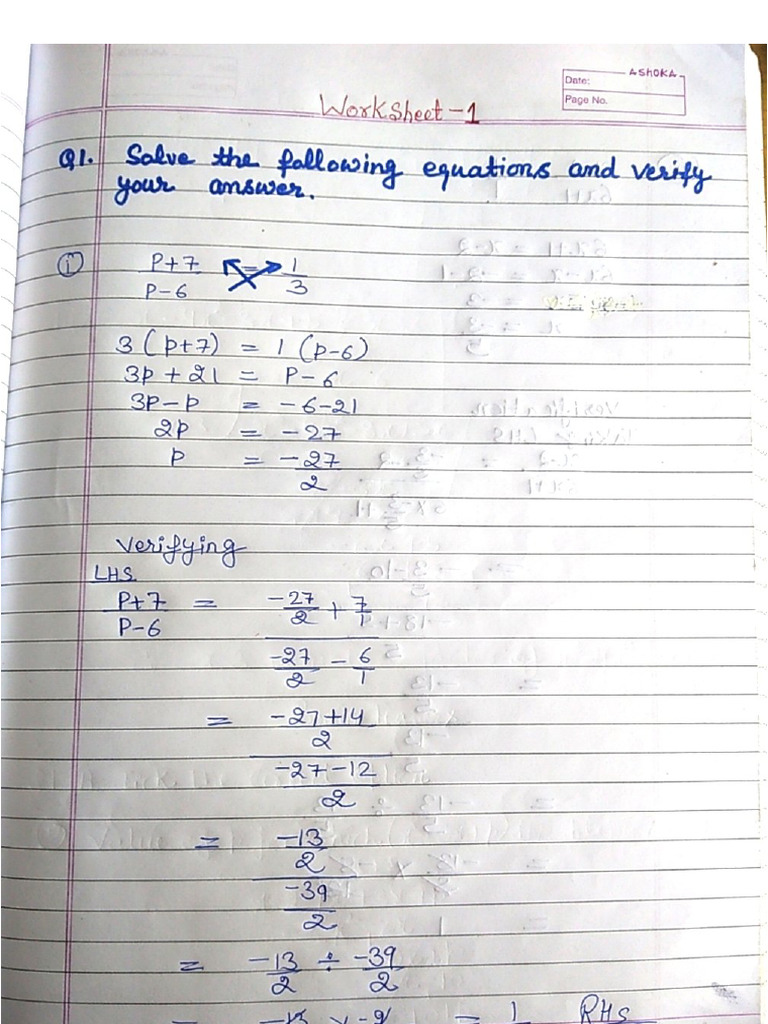 ASHOKA
Date:
Page No.
Worksheet-1
Q1. Solve the following equations and verify
your answer.
i) P+7 / P-6 = 1/3
3(p+7) = 1(p-6)
3p+21 = P-6
3p-p = -6-21
2p = -27
p = -27/2
Verifying
LHS
P+7 / P-6 = -27/2 + 7/1 / -27/2 - 6/1
= -27+14/2 / -27-12/2
= -13/2 / -39/2
= -13/2 ÷ -39/2
= 1 RHS